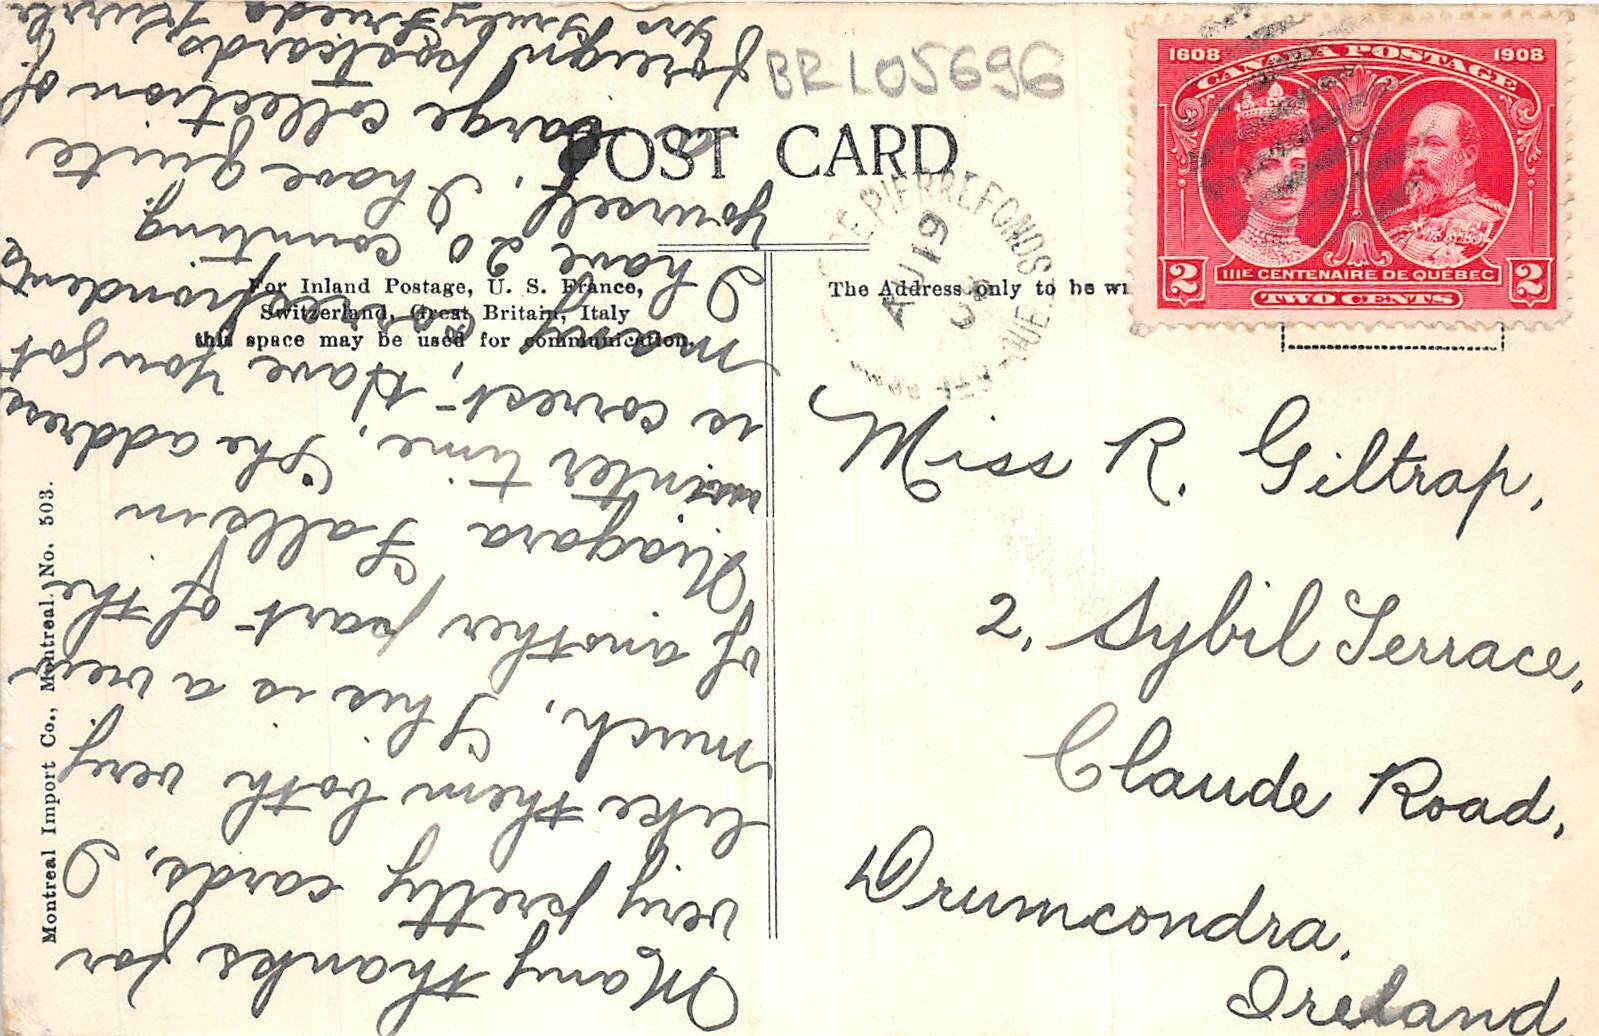 BRL05696
POST CARD
For Inland Postage, U. S. France,
Switzerland, Great Britain, Italy
this space may be used for communication.
The Address only to be
1608 1908
CANADA POSTAGE
2 IIIE CENTENAIRE DE QUÉBEC 2
TWO CENTS
STE PIERREFONDS
AU 19
08
QUE
Miss R. Giltrap,
2, Sybil Terrace,
Claude Road,
Drumcondra,
Ireland
Montreal Import Co., Montreal. No. 503.
Many thanks for
very pretty cards, I
like them both very
much. This is a view
of another part of the
Niagara Falls in
winter time, The address
is correct. Have you got
many correspondents
I have 20 counting
yourself, I have quite
a large collection of
foreign postcards,
Yrs truly